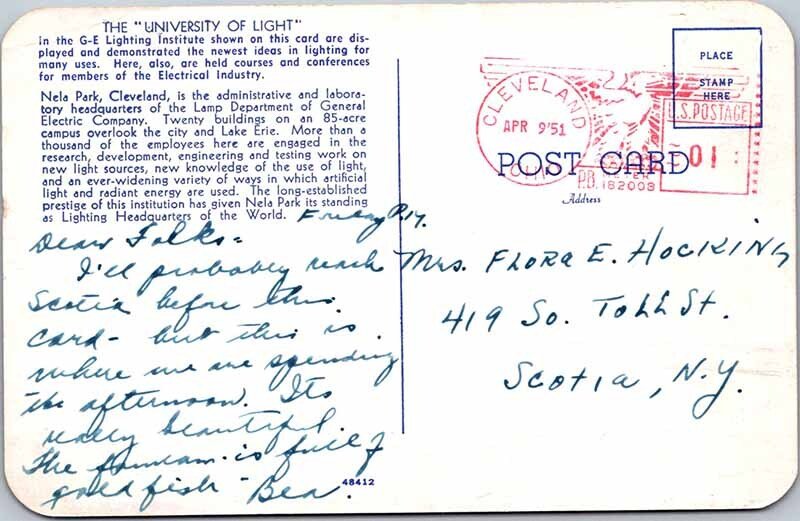 THE "UNIVERSITY OF LIGHT"
In the G-E Lighting Institute shown on this card are dis-
played and demonstrated the newest ideas in lighting for
many uses. Here, also, are held courses and conferences
for members of the Electrical Industry.
Nela Park, Cleveland, is the administrative and labora-
tory headquarters of the Lamp Department of General
Electric Company. Twenty buildings on an 85-acre
campus overlook the city and Lake Erie. More than a
thousand of the employees here are engaged in the
research, development, engineering and testing work on
new light sources, new knowledge of the use of light,
and an ever-widening variety of ways in which artificial
light and radiant energy are used. The long-established
prestige of this institution has given Nela Park its standing
as Lighting Headquarters of the World.
Friday P.M.
Dear Folks=
I'll probably reach
Scotia before this
card- but this is
where we are spending
the afternoon. Its
really beautiful.
The fountain is full of
gold fish - Bea.
48412
PLACE
STAMP
HERE
CLEVELAND
APR 9'51
OHIO
U.S. POSTAGE
01
P.B. METER
182008
POST CARD
Address
Mrs. FLORA E. HOCKING
419 So. TOLL St.
SCOTIA, N.Y.